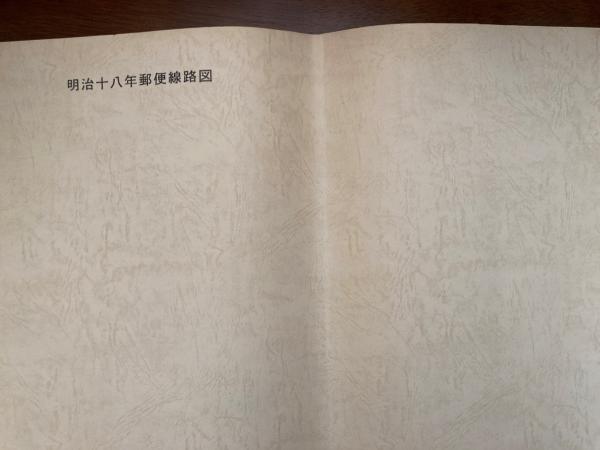 明治十八年郵便線路図